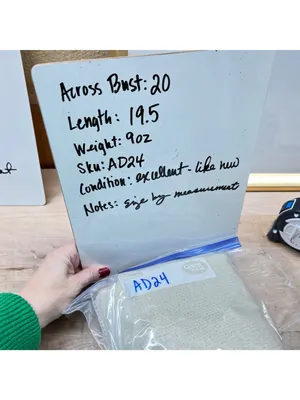 Across Bust: 20
Length: 19.5
Weight: 9oz
Sku: AD24
Condition: excellent - like new
Notes: size by measurement
AD24